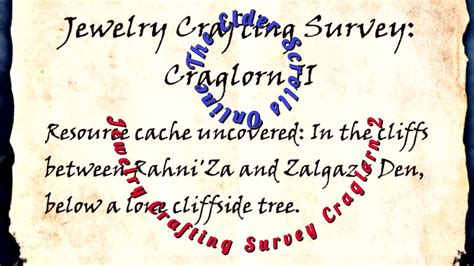 Jewelry Crafting Survey:
Craglorn II
Resource cache uncovered: In the cliffs
between Rahni'Za and Zalgaz's Den,
below a lone cliffside tree.
The Elder Scrolls Online
Jewelry Crafting Survey Craglorn2